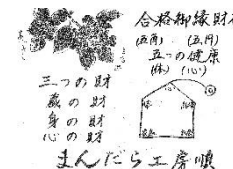 合格御縁財布
(五角) (五円)
五つの健康
(体) (心)
三つの財
蔵の財
身の財
心の財
まんだら工房順